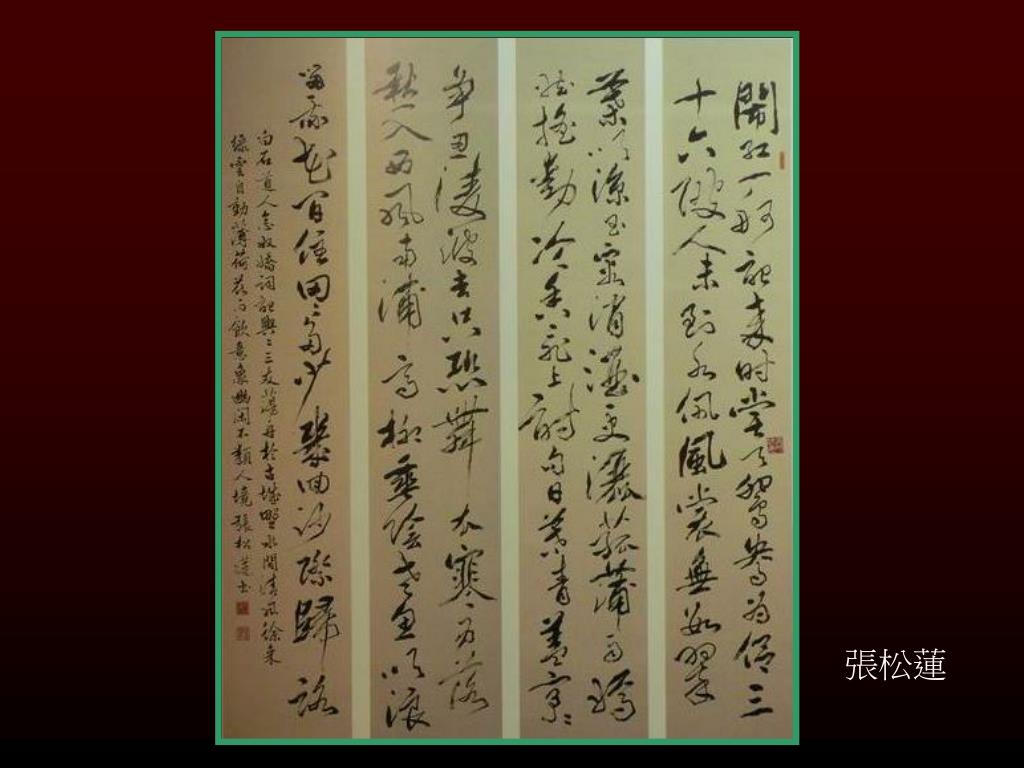 鬧紅一舸記來時嘗與鴛鴦為侶三
十六陂人未到水佩風裳無數翠
葉吹涼玉容消酒更灑菰蒲雨嫣
然搖動冷香飛上詩句日暮青蓋亭〻
爭忍凌波去只恐舞衣寒易落
愁入西風南浦高柳垂陰老魚吹浪
留我花間住田〻多少幾回沙際歸路
白石道人念奴嬌詞記與二三友蕩舟於古城野水間清風徐來
綠雲自動薄荷花而飲意象幽閑不類人境張松蓮書
張松蓮